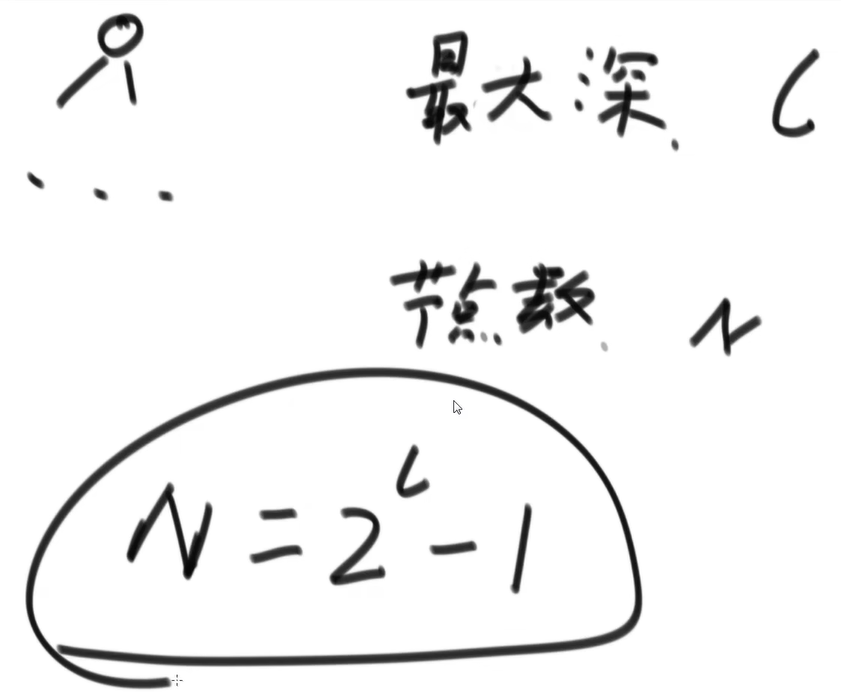 最大深 L
节点数 N
N = 2^L - 1